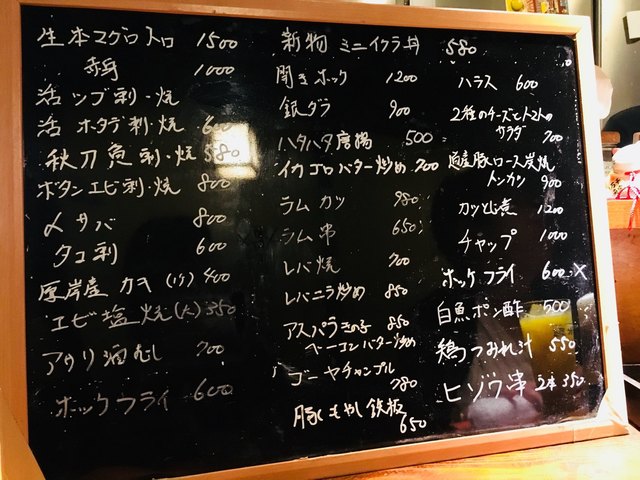 生本マグロトロ 1500
赤身 1000
活ツブ刺・焼
活ホタテ刺・焼 600
秋刀魚刺・焼 580
ボタンエビ刺・焼 800
〆サバ 800
タコ刺 600
厚岸産カキ(1ヶ) 400
エビ塩焼(大) 350
アサリ酒むし 700
ホックフライ 600
新物ミニイクラ丼 580
開きホッケ 1200
銀ダラ 900
ハタハタ唐揚 500
イカゴロバター炒め 700
ラムカツ 980
ラム串 650
レバ焼 700
レバニラ炒め 850
アスパラきのこ 850
ベーコンバター炒め
ゴーヤチャンプル
780
豚もやし鉄板
650
ハラス 600
2種のチーズとトマトの
サラダ 700
道産豚ロース炭焼
トンカツ 900
カツとじ煮 1200
チャップ 1000
ホッケフライ 600 ×
白魚ポン酢 500
鶏つみれ汁 550
ヒゾウ串 2本 350